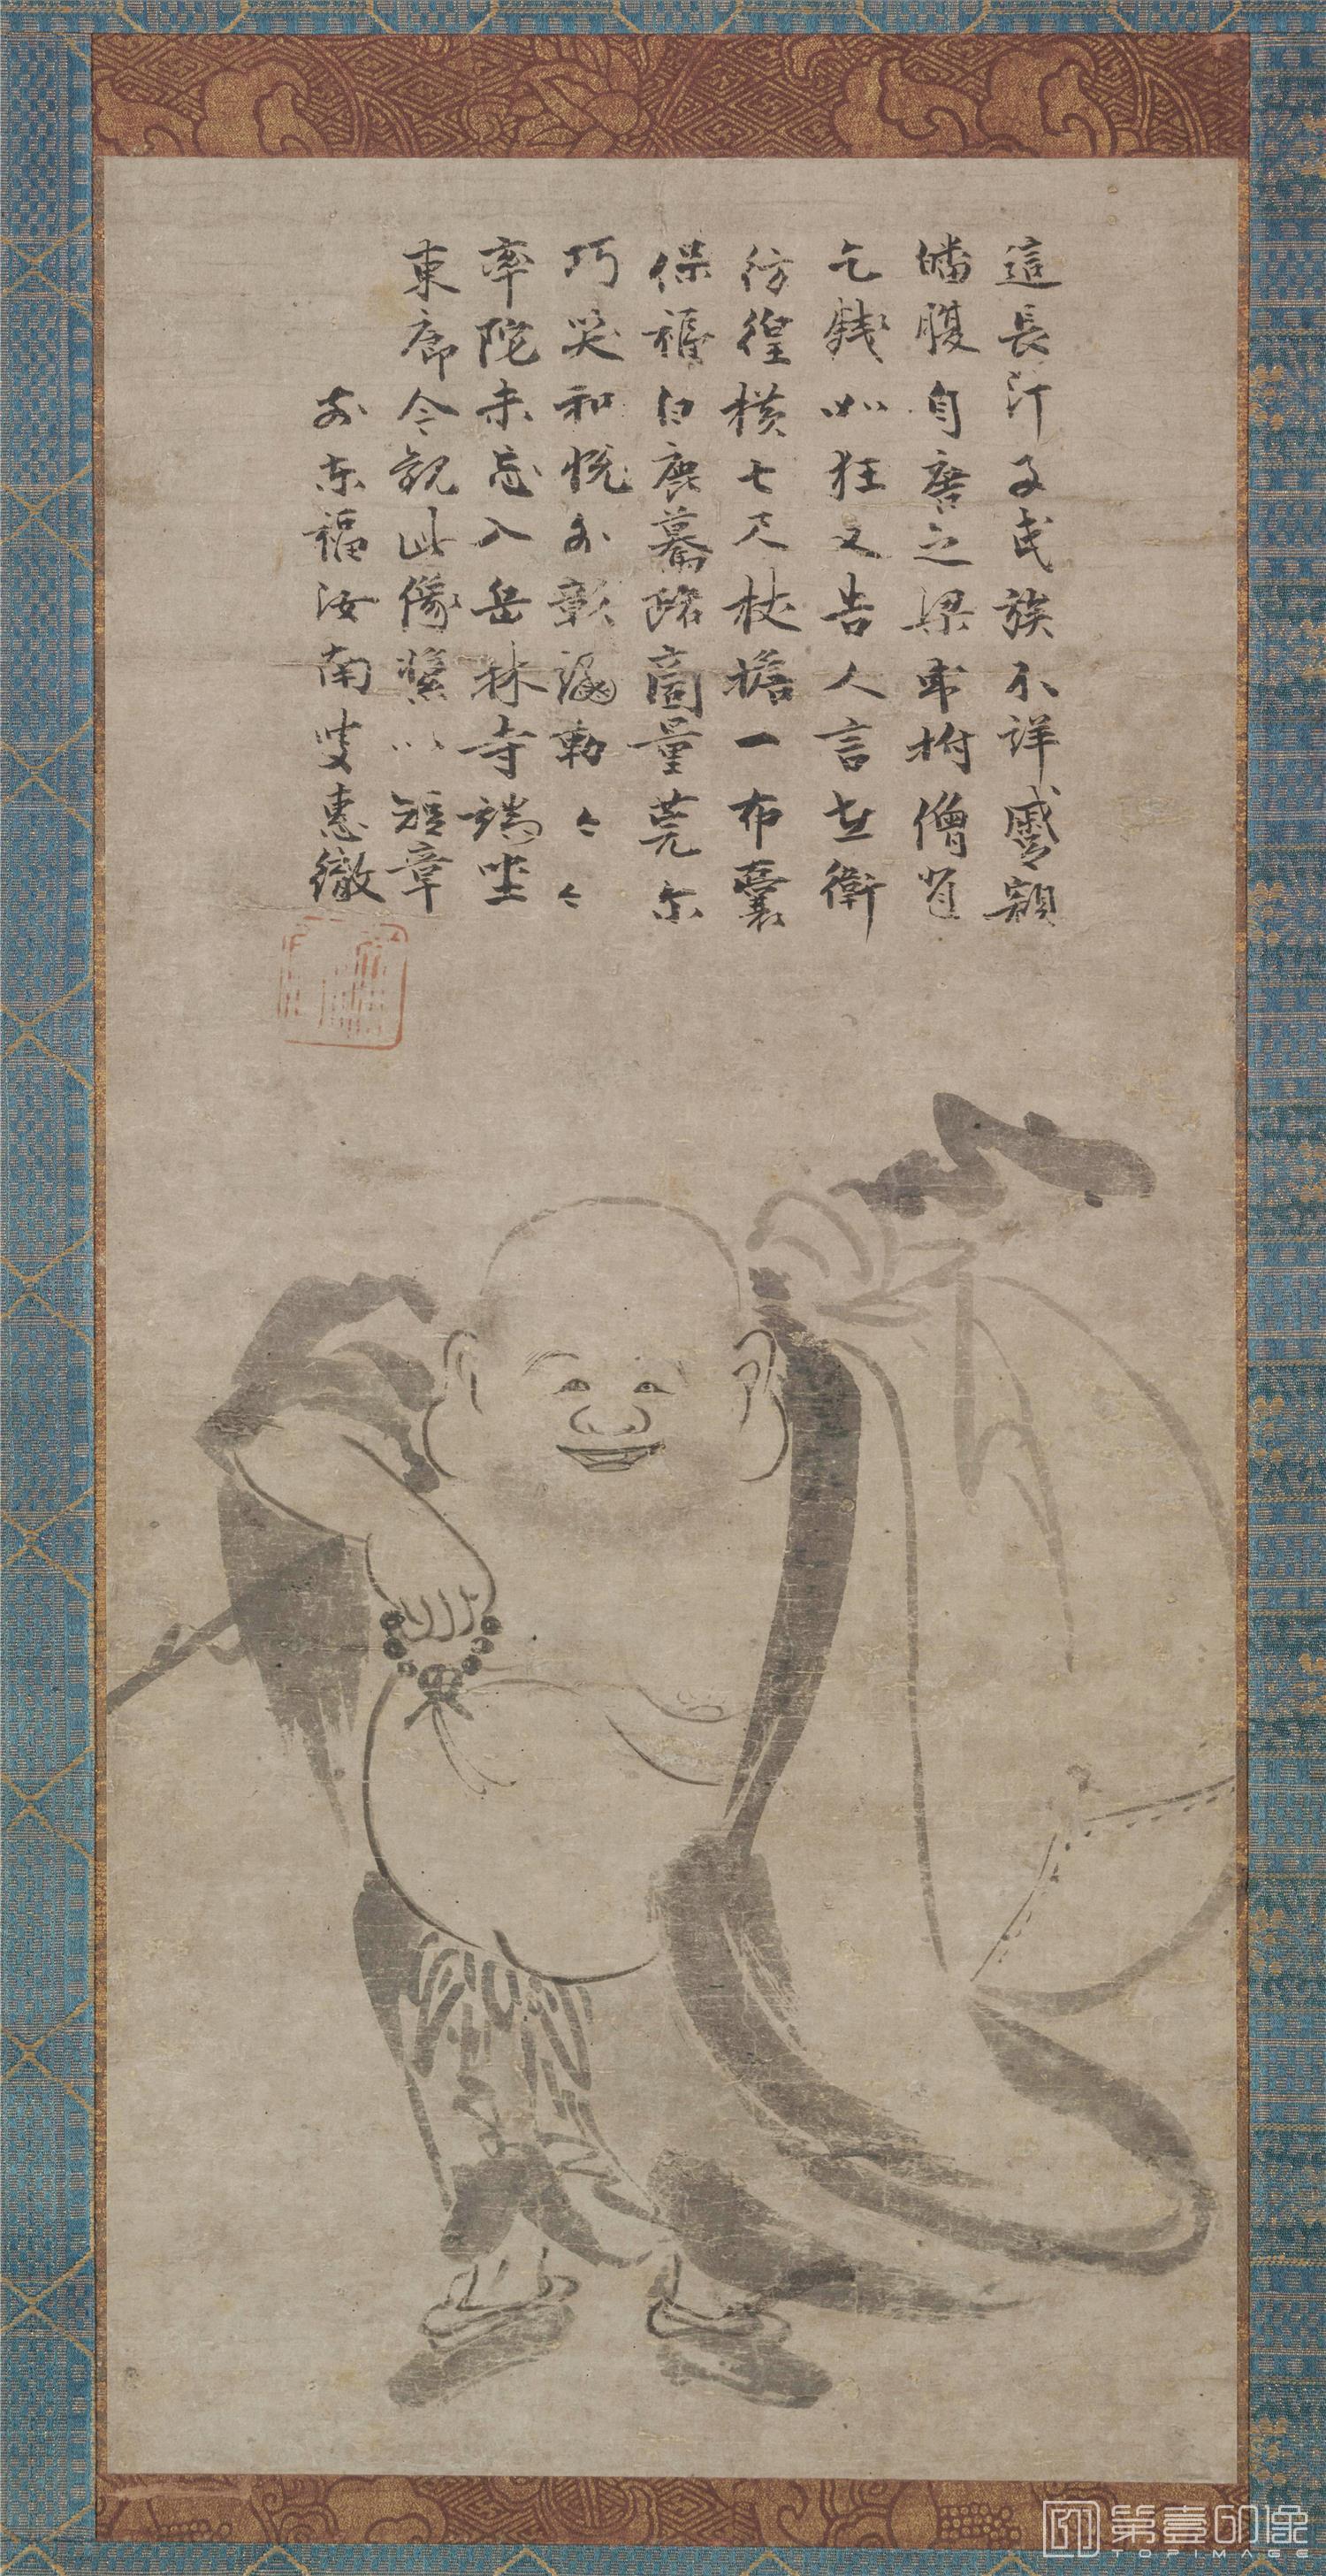 這長汀子氏族不詳蹙頞
皤腹自唐之梁或拊僧背
乞錢如狂又告人言在衢
彷徨橫七尺杖擔一布囊
保福白鹿驀路商量莞尔
巧笑和悅外彰彌勒々々
率陀未忘入岳林寺端坐
東廊今觀此像贅以短章
前東福汝南叟惠徹
第壹印像
TOPIMAGE